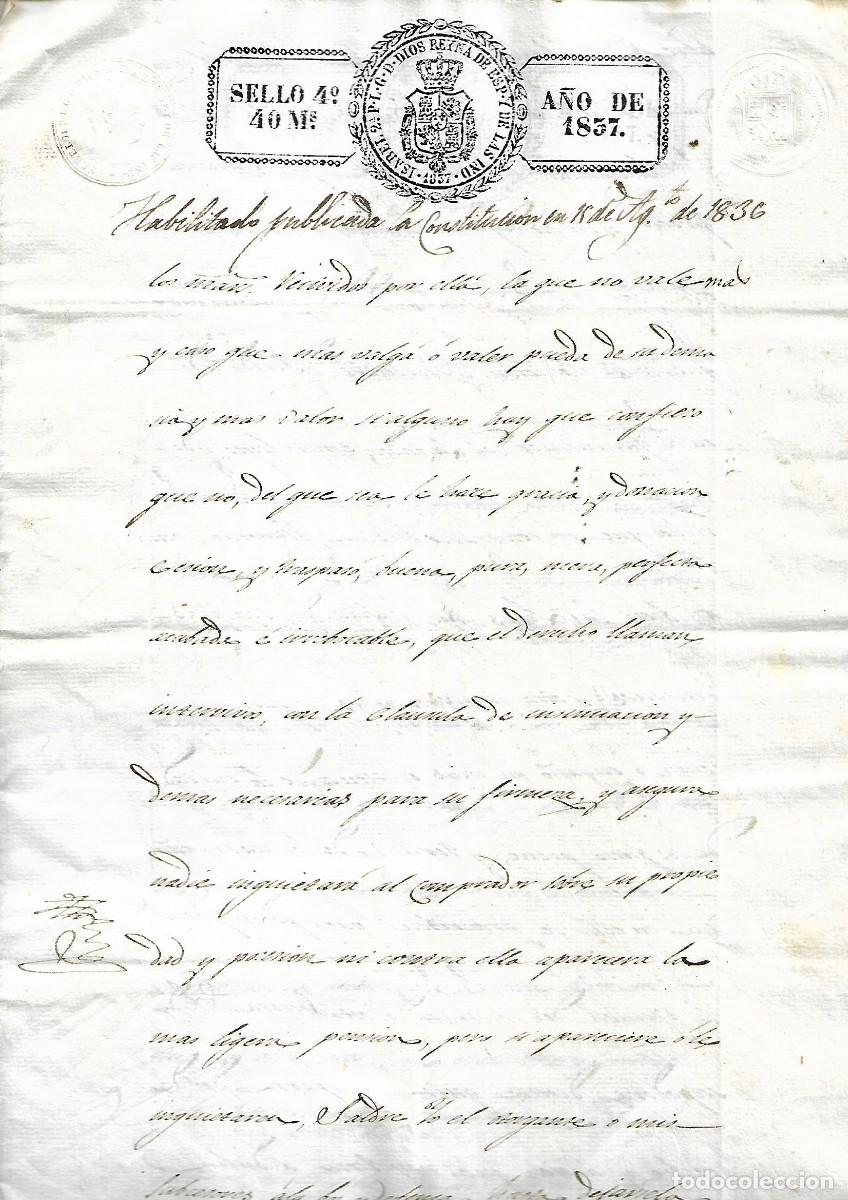 SELLO 4º
40 Ms.
ISABEL 2ª P·L·G·D·DIOS REYNA DE ESP·Y DE LAS IND
·1837·
AÑO DE
1837.
Habilitado publicada la Constitucion en 15 de Ag.to de 1836
los mrãv. Recividos por ella, la que no vale mas
y caso que mas valga ó valer pueda de su dema
sia y mas valor si alguno hay que confieso
que no, del que sea le hace gracia, y donacion
Cesion, y traspaso, buena, pura, mera, perfecta
acabada é irrebocable, que el derecho llaman
intervivos, con la Clausula de insinuacion y
demas necesarias para su firmeza, y asegura
nadie inquietará al Comprador sobre su propie
dad y posesion ni contra ella aparecera la
mas ligera pension, pero si apareciere ó le
inquietaren, Saldré Yo el otorgante o mis
Subcesores á la defensa hasta dejarlo
todocoleccion